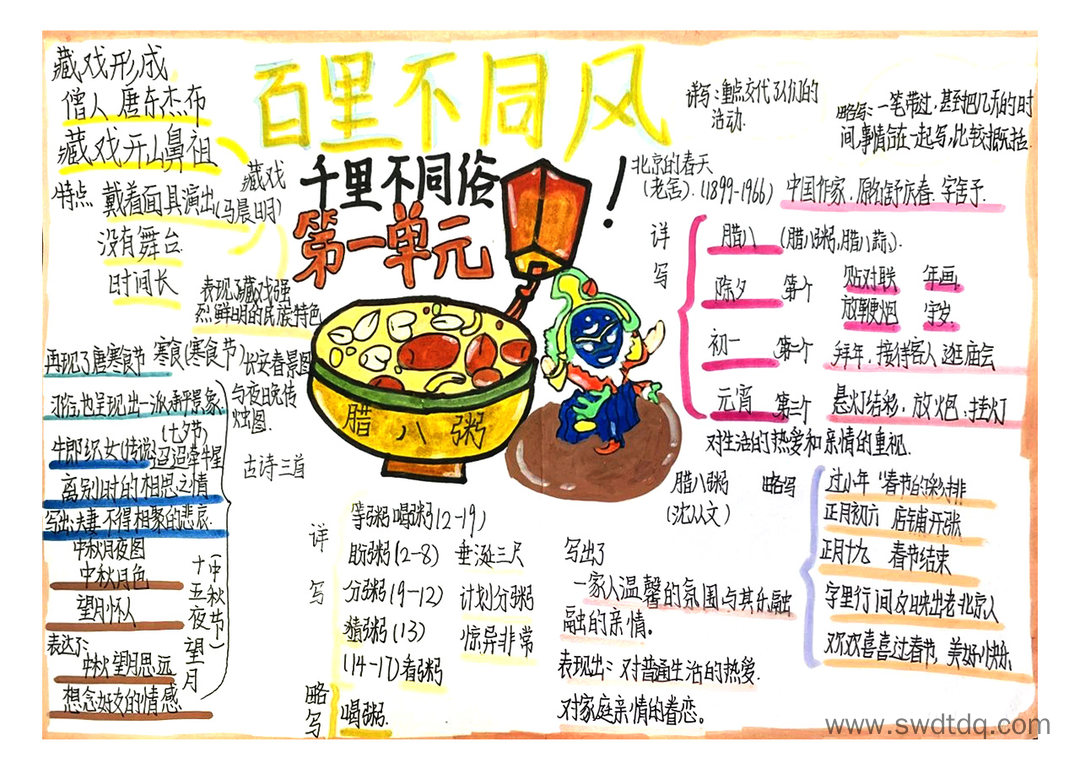 百里不同风
千里不同俗
！
第一单元
藏戏形成
僧人 唐东杰布
藏戏开山鼻祖
藏戏
(马晨明)
特点 戴着面具演出
没有舞台
时间长
表现了藏戏强
烈鲜明的民族特色
详写：重点交代了人们的
活动.
略写：一笔带过，甚至把几天的时
间,事情合在一起写,比较概括.
北京的春天
(老舍).(1899-1966) 中国作家,原名舒庆春.字舍予.
详写
腊八 (腊八粥,腊八蒜).
除夕 第一个 贴对联 年画
放鞭炮 守岁.
初一 第二个 拜年.接待客人 逛庙会
元宵 第三个 悬灯结彩,放火包;挂灯
对生活的热爱和亲情的重视.
略写
过小年 "春节的彩排
正月初六 店铺开张
正月十九 春节结束
字里行间反映出老北京人
欢欢喜喜过春节,美好快乐
古诗三首
寒食(寒食节) 长安春景图
与夜晚传
烛图.
再现了唐寒食节
习俗,也呈现出一派承平景象
(七夕节)
迢迢牵牛星
牛郎织女传说
离别时的相思之情
写出夫妻不得相聚的悲哀.
十五夜望月
(中秋节)
中秋月夜图
中秋月色
望月怀人
表达了:
中秋望月思远
想念好友的情感
腊八粥
腊八粥
(沈从文)
详写
等粥喝粥(2-19)
盼粥(2-8) 垂涎三尺
分粥(9-12) 计划分粥
猜粥(13) 惊异非常
(14-17)看粥
略写
喝粥.
写出了
一家人温馨的氛围与其乐融
融的亲情。
表现出：对普通生活的热爱.
对家庭亲情的眷恋。
www.swdtdq.com